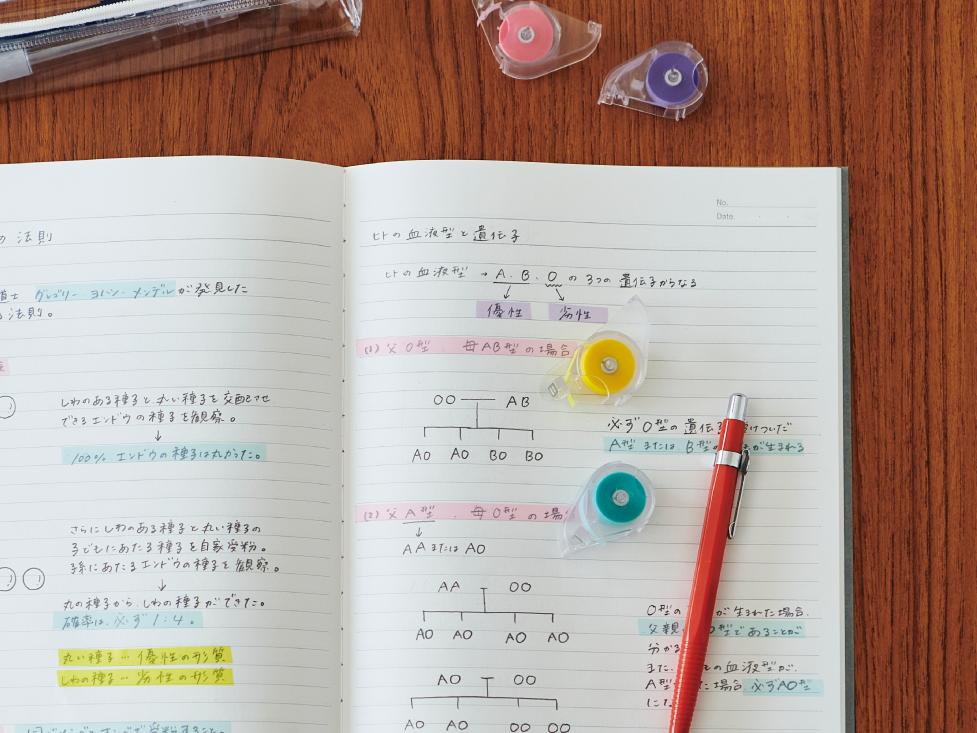 の法則
道士 グレゴリー ヨハン・メンデルが発見した
る法則。
しわのある種子と丸い種子を交配させ
できるエンドウの種子を観察。
↓
100% エンドウの種子は丸かった。
さらにしわのある種子と丸い種子の
子どもにあたる種子を自家受粉。
子孫にあたるエンドウの種子を観察。
↓
丸の種子から、しわの種子ができた。
確率は、必ず1:4。
丸い種子…優性の形質
しわの種子…劣性の形質
No.
Date.
ヒトの血液型と遺伝子
ヒトの血液型 → A.B.Oの3つの遺伝子からなる
優性 劣性
(1) 父O型 母AB型の場合
OO AB
AO AO BO BO
必ずO型の遺伝子 けついだ
A型またはB型の が生まれる
(2) 父A型、母O型の場合
↓
AAまたはAO
AA OO
AO AO AO AO
O型の が生まれた場合、
父親 O型であることが
分かる
また、 の血液型が、
A型 た場合 必ずAO型
にな
AO OO
AO AO OO OO